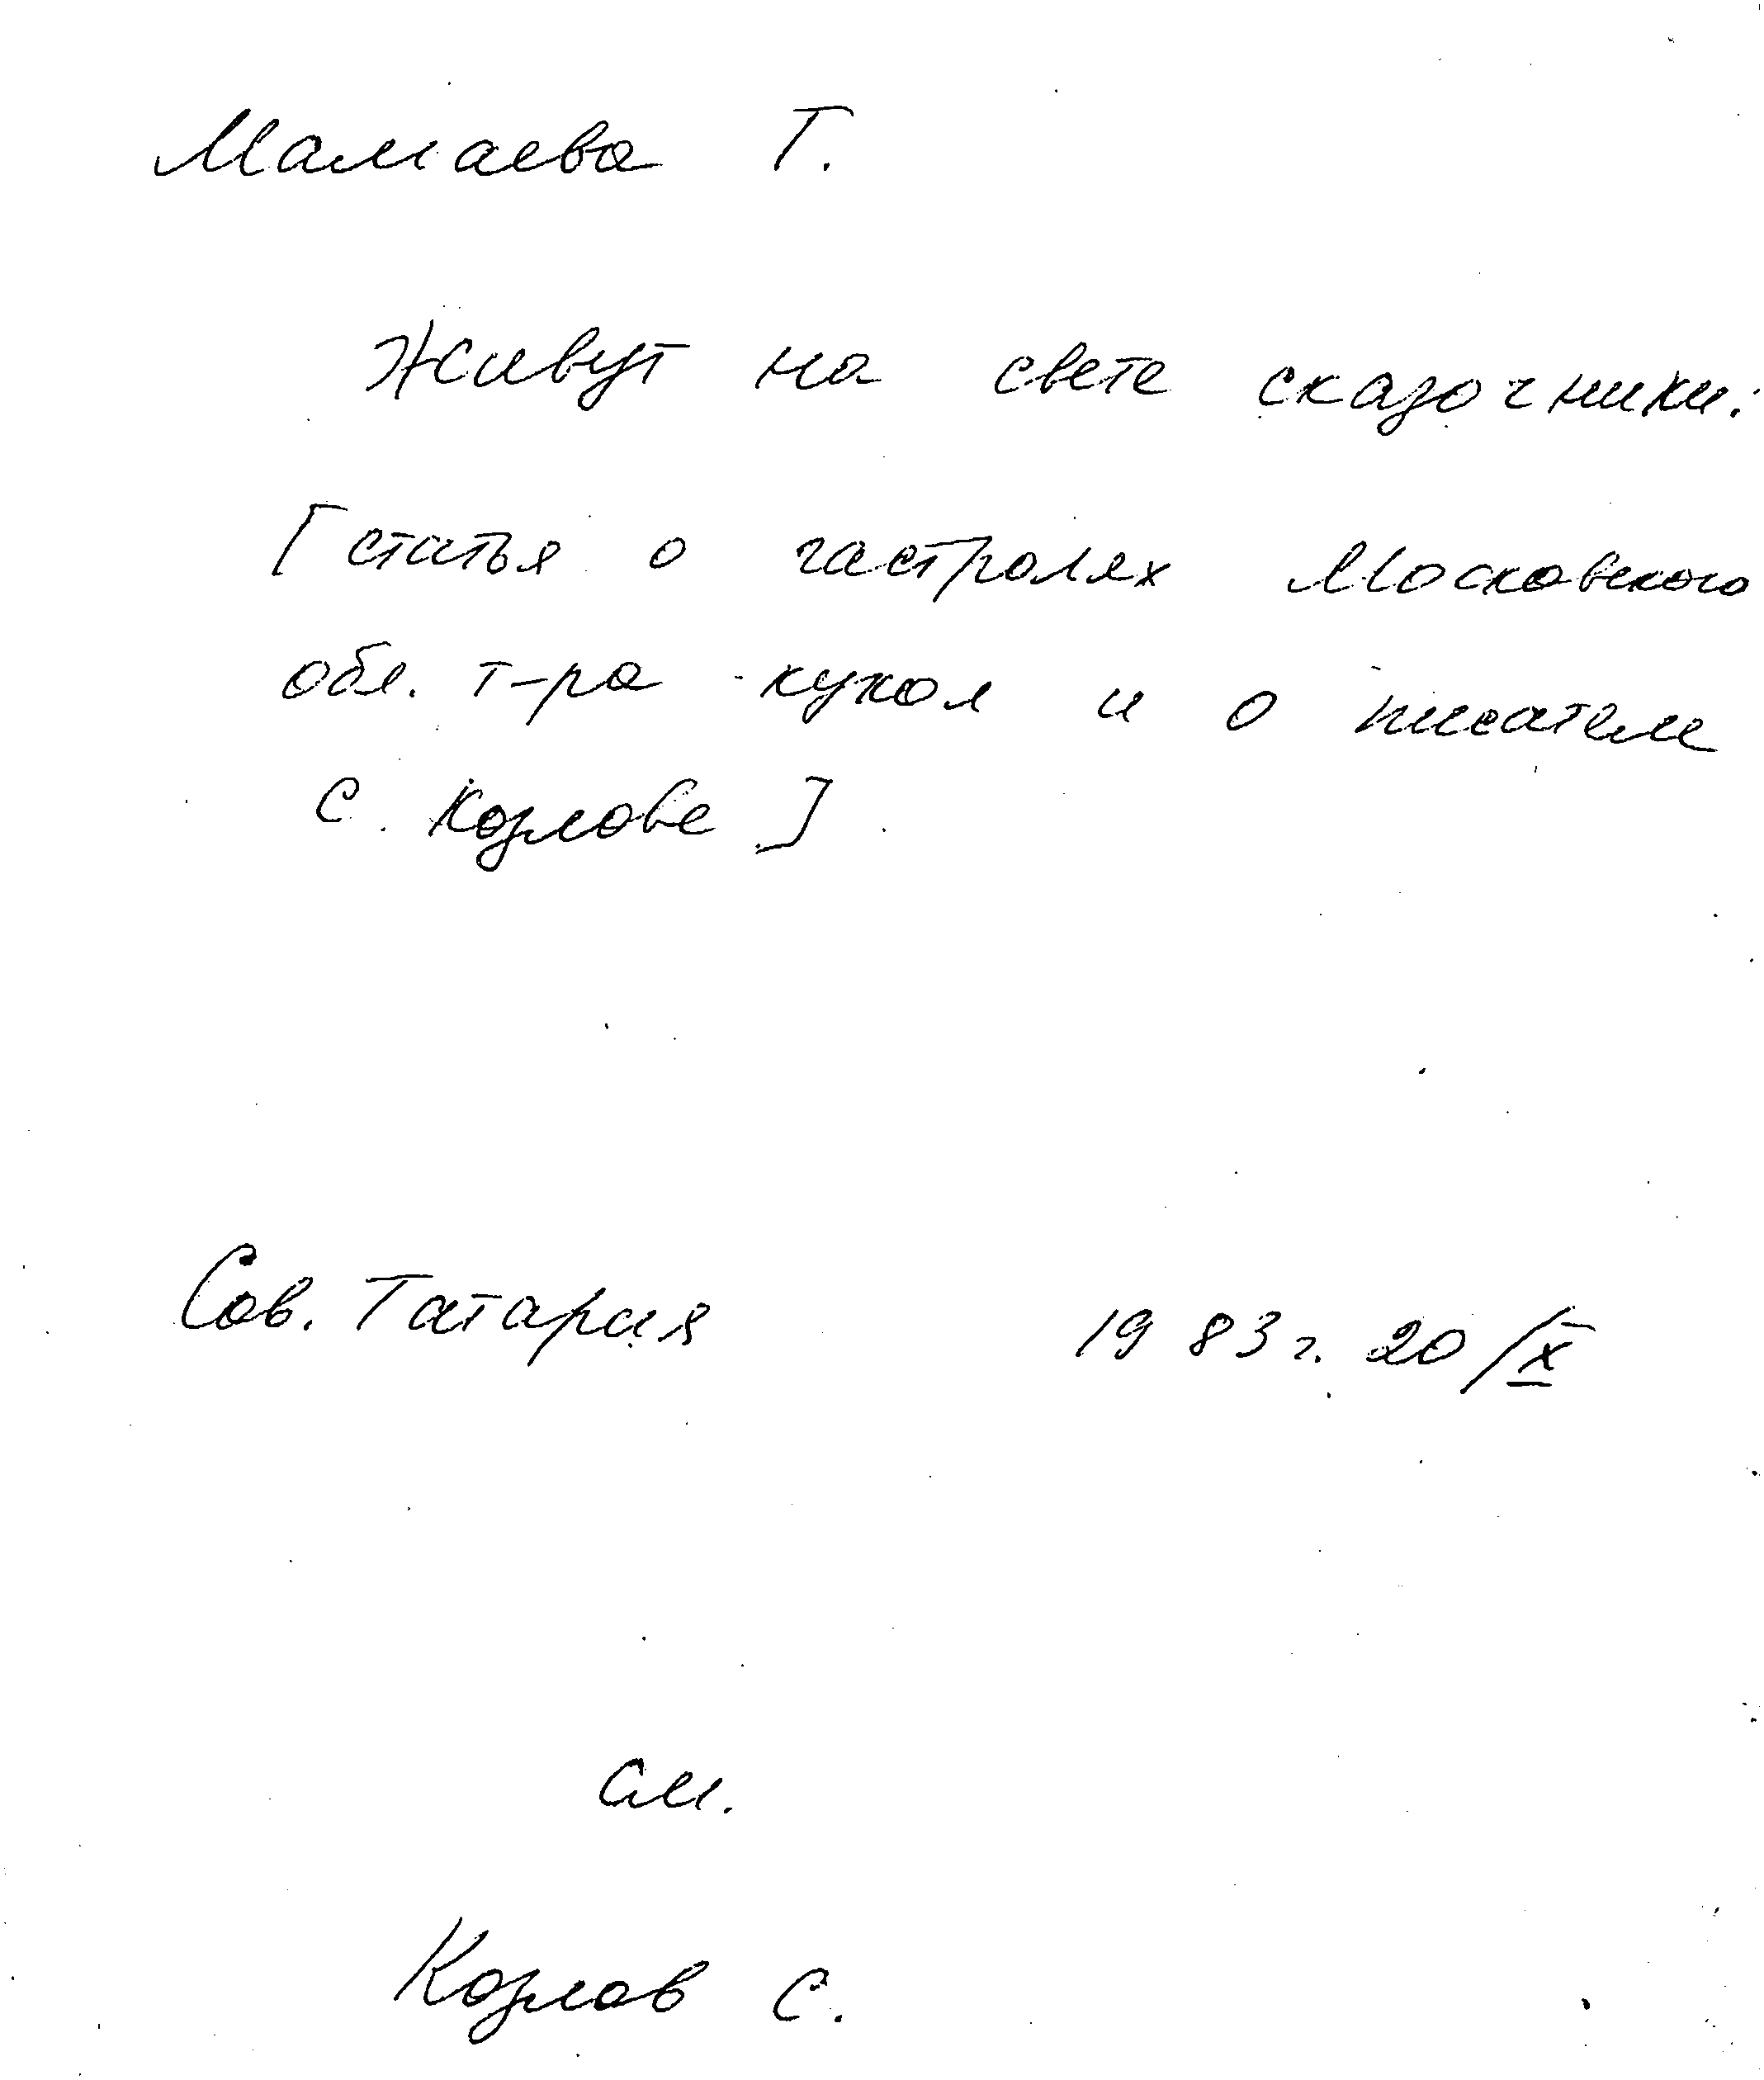 Мамаева Т.
Живут на свете сказочники:
[статья о гастролях Московского
обл. т-ра кукол и о писателе
С. Козлове]
Сов. Татария 1983 г. 20/IX
см.
Козлов С.